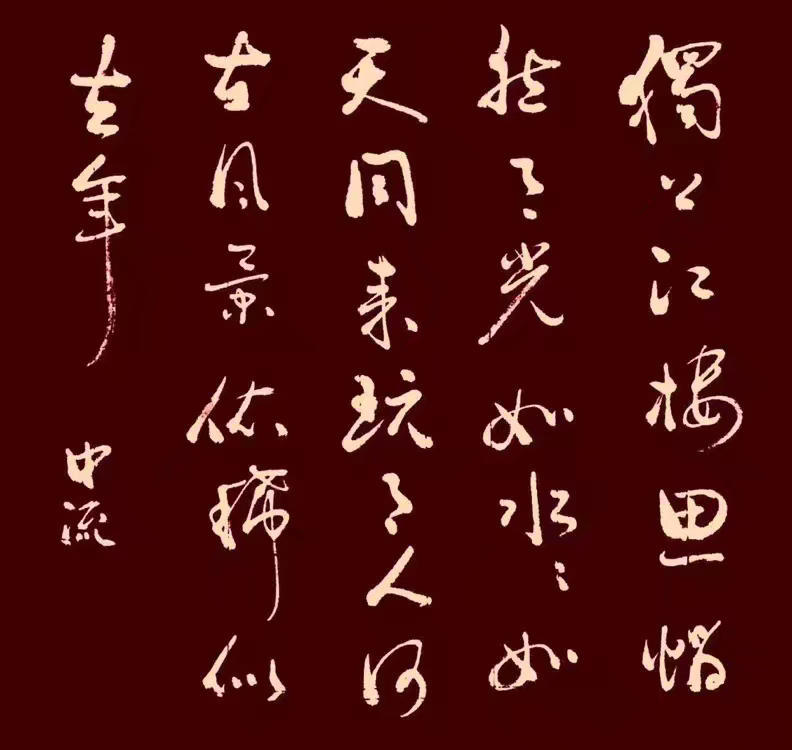 獨上江樓思悄
然月光如水〻如
天同來玩月人何
在風景依稀似
去年
中流